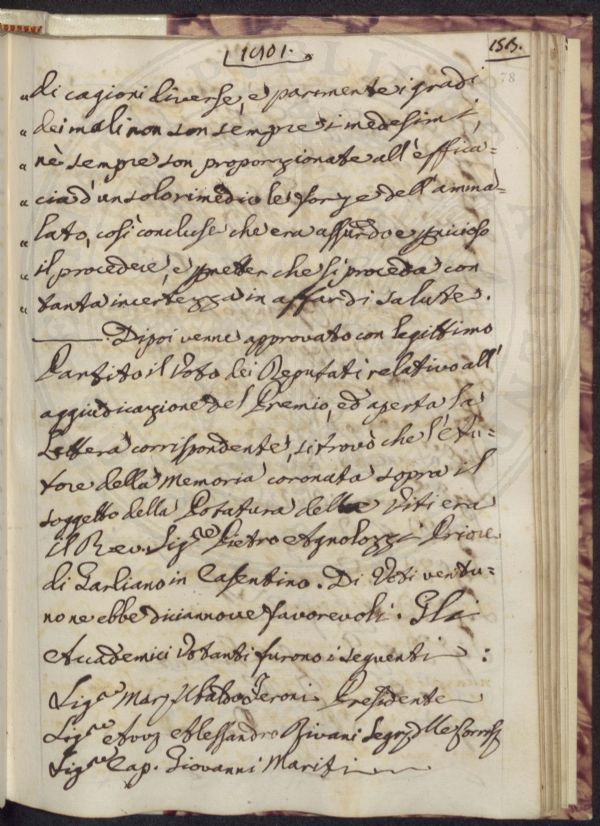 1801.
153.
78
„ di cagioni diverse, e parimente i gradi
„ dei mali non son sempre i medesimi,
„ nè sempre son proporzionate all'effica=
„ cia d'un solo rimedio le forze dell'amma=
„ lato, così concluse che era assurdo e pnicioso
„ il procedere, e pmetter che si proceda con
„ tanta incertezza in affar di salute.
Dipoi venne approvato con legittimo
Partito il Voto dei Deputati relativo all'
aggiudicazione del Premio, ed aperta la
Lettera corrispondente, si trovò che l'Au=
tore della Memoria coronata sopra il
soggetto della Potatura delle Viti era
il Rev. Sigre Pietro Agnolozzi Priore
di Garliano in Casentino. Di Voti ventu=
no ne ebbe diciannove favorevoli. Gli
Accademici Votanti furono i seguenti:
Sigre Ubaldo Feroni Presidente
Sigre Avv Alessandro Rivani
Sigre Cap. Giovanni Mariti